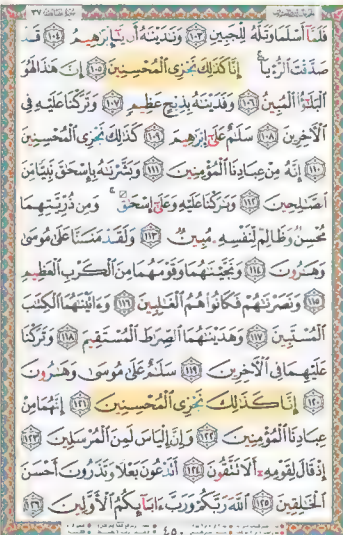 سُورَةُ الصَّافَّاتِ ٣٧
فَلَمَّآ أَسْلَمَا وَتَلَّهُۥ لِلْجَبِينِ ١٠٣ وَنَٰدَيْنَٰهُ أَن يَٰٓإِبْرَٰهِيمُ ١٠٤ قَدْ
صَدَّقْتَ ٱلرُّءْيَآ إِنَّا كَذَٰلِكَ نَجْزِى ٱلْمُحْسِنِينَ ١٠٥ إِنَّ هَٰذَا لَهُوَ
ٱلْبَلَٰٓؤُا۟ ٱلْمُبِينُ ١٠٦ وَفَدَيْنَٰهُ بِذِبْحٍ عَظِيمٍ ١٠٧ وَتَرَكْنَا عَلَيْهِ فِى
ٱلْءَاخِرِينَ ١٠٨ سَلَٰمٌ عَلَىٰٓ إِبْرَٰهِيمَ ١٠٩ كَذَٰلِكَ نَجْزِى ٱلْمُحْسِنِينَ
١١٠ إِنَّهُۥ مِنْ عِبَادِنَا ٱلْمُؤْمِنِينَ ١١١ وَبَشَّرْنَٰهُ بِإِسْحَٰقَ نَبِيًّا مِّنَ
ٱلصَّٰلِحِينَ ١١٢ وَبَٰرَكْنَا عَلَيْهِ وَعَلَىٰٓ إِسْحَٰقَ وَمِن ذُرِّيَّتِهِمَا
مُحْسِنٌ وَظَالِمٌ لِّنَفْسِهِۦ مُبِينٌ ١١٣ وَلَقَدْ مَنَنَّا عَلَىٰ مُوسَىٰ
وَهَٰرُونَ ١١٤ وَنَجَّيْنَٰهُمَا وَقَوْمَهُمَا مِنَ ٱلْكَرْبِ ٱلْعَظِيمِ
١١٥ وَنَصَرْنَٰهُمْ فَكَانُوا۟ هُمُ ٱلْغَٰلِبِينَ ١١٦ وَءَاتَيْنَٰهُمَا ٱلْكِتَٰبَ
ٱلْمُسْتَبِينَ ١١٧ وَهَدَيْنَٰهُمَا ٱلصِّرَٰطَ ٱلْمُسْتَقِيمَ ١١٨ وَتَرَكْنَا
عَلَيْهِمَا فِى ٱلْءَاخِرِينَ ١١٩ سَلَٰمٌ عَلَىٰ مُوسَىٰ وَهَٰرُونَ
١٢٠ إِنَّا كَذَٰلِكَ نَجْزِى ٱلْمُحْسِنِينَ ١٢١ إِنَّهُمَا مِنْ
عِبَادِنَا ٱلْمُؤْمِنِينَ ١٢٢ وَإِنَّ إِلْيَاسَ لَمِنَ ٱلْمُرْسَلِينَ ١٢٣
إِذْ قَالَ لِقَوْمِهِۦٓ أَلَا تَتَّقُونَ ١٢٤ أَتَدْعُونَ بَعْلًا وَتَذَرُونَ أَحْسَنَ
ٱلْخَٰلِقِينَ ١٢٥ ٱللَّهَ رَبَّكُمْ وَرَبَّ ءَابَآئِكُمُ ٱلْأَوَّلِينَ ١٢٦
٤٥٠